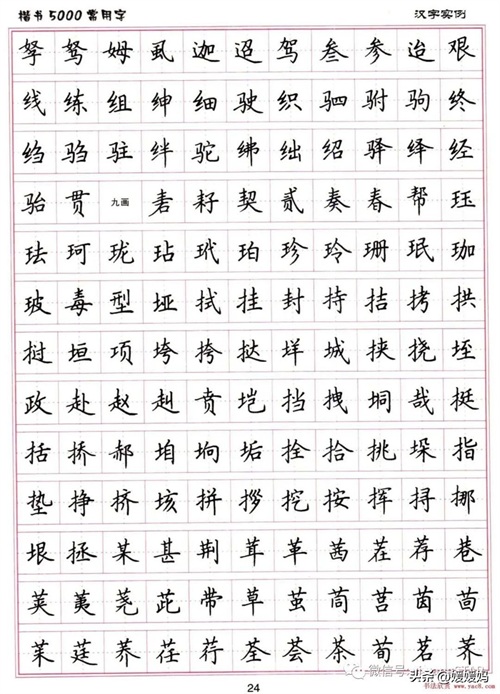 楷书5000常用字 汉字实例
孥 驽 姆 虱 迦 迢 驾 叁 参 迨 艰
线 练 组 绅 细 驶 织 驷 驸 驹 终
绉 驺 驻 绊 驼 绋 绌 绍 驿 绎 经
骀 贯 九画 砉 耔 契 贰 奏 春 帮 珏
珐 珂 珑 玷 玳 珀 珍 玲 珊 珉 珈
玻 毒 型 垭 拭 挂 封 持 拮 拷 拱
挝 垣 项 垮 挎 挞 垟 城 挟 挠 垤
政 赴 赵 赳 贲 垲 挡 拽 垌 哉 挺
括 挢 郝 垍 垧 垢 拴 拾 挑 垛 指
垫 挣 挤 垓 拼 拶 挖 按 挥 挦 挪
垠 拯 某 甚 荆 茸 革 茜 茬 荐 巷
荚 荑 荛 茈 带 草 茧 茼 莒 茵 茴
茱 莛 荞 荏 荇 荃 荟 茶 荀 茗 荠
24
头条@媛媛妈
www.yac8.com